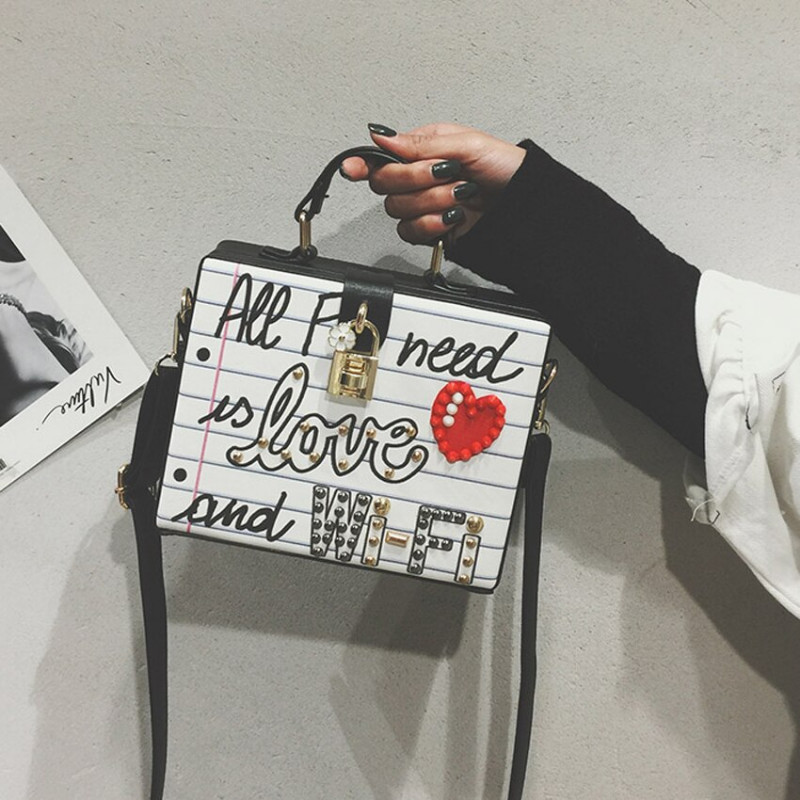 All F need
is love
and Wi-Fi
Vulture